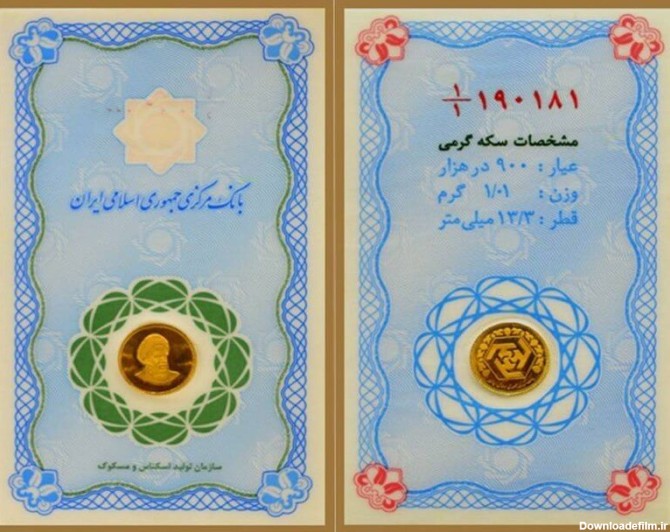 بانک مرکزی جمهوری اسلامی ایران
سازمان تولید اسکناس و مسکوک
۱/۱ ۱۹۰۱۸۱
مشخصات سکه گرمی
عیار : ۹۰۰ در هزار
وزن : ۱/۰۱ گرم
قطر : ۱۳/۳ میلی‌متر
Downloadefilm.ir